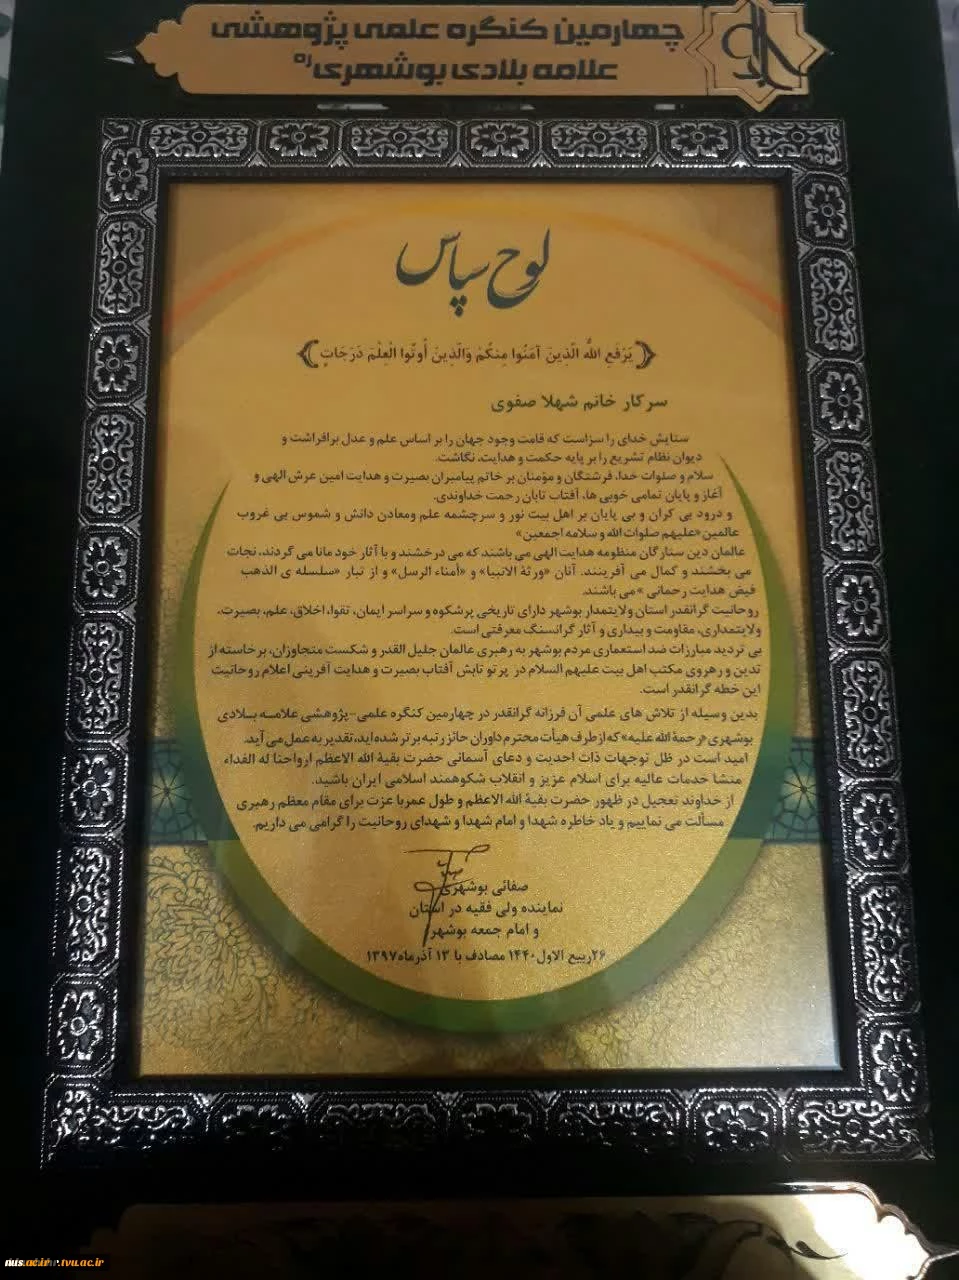 چهارمین کنگره علمی پژوهشی
علامه بلادی بوشهری ره
لوح سپاس
﴿يَرْفَعِ اللَّهُ الَّذِينَ آمَنُوا مِنكُمْ وَالَّذِينَ أُوتُوا الْعِلْمَ دَرَجَاتٍ﴾
سرکار خانم شهلا صفوی
ستایش خدای را سزاست که قامت وجود جهان را بر اساس علم و عدل برافراشت و
دیوان نظام تشریع را بر پایه حکمت و هدایت، نگاشت.
سلام و صلوات خدا، فرشتگان و مؤمنان بر خاتم پیامبران بصیرت و هدایت امین عرش الهی و
آغاز و پایان تمامی خوبی ها، آفتاب تابان رحمت خداوندی.
و درود بی کران و بی پایان بر اهل بیت نور و سرچشمه علم ومعادن دانش و شموس بی غروب
عالمین «علیهم صلوات الله و سلامه اجمعین»
عالمان دین ستارگان منظومه هدایت الهی می باشند که می درخشند و با آثار خود مانا می گردند، نجات
می بخشند و کمال می آفرینند. آنان «ورثة الانبیا» و «أمناء الرسل» و از تبار «سلسله ی الذهب
فیض هدایت رحمانی» می باشند.
روحانیت گرانقدر استان ولایتمدار بوشهر دارای تاریخی پرشکوه و سراسر ایمان، تقوا، اخلاق، علم، بصیرت،
ولایتمداری، مقاومت و بیداری و آثار گرانسنگ معرفتی است.
بی تردید مبارزات ضد استعماری مردم بوشهر به رهبری عالمان جلیل القدر و شکست متجاوزان، برخاسته از
تدین و رهروی مکتب اهل بیت علیهم السلام در پرتو تابش آفتاب بصیرت و هدایت آفرینی اعلام روحانیت
این خطه گرانقدر است.
بدین وسیله از تلاش های علمی آن فرزانه گرانقدر در چهارمین کنگره علمی-پژوهشی علامه بلادی
بوشهری «رحمة الله علیه» که از طرف هیأت محترم داوران حائز رتبه برتر شده اید، تقدیر به عمل می آید.
امید است در ظل توجهات ذات احدیت و دعای آسمانی حضرت بقیة الله الاعظم ارواحنا له الفداء
منشا خدمات عالیه برای اسلام عزیز و انقلاب شکوهمند اسلامی ایران باشید.
از خداوند تعجیل در ظهور حضرت بقیة الله الاعظم و طول عمر با عزت برای مقام معظم رهبری
مسألت می نماییم و یاد خاطره شهدا و امام شهدا و شهدای روحانیت را گرامی می داریم.
صفائی بوشهری
نماینده ولی فقیه در استان
و امام جمعه بوشهر
۲۶ربیع الاول۱۴۴۰ مصادف با ۱۳ آذرماه۱۳۹۷
.tvu.ac.ir